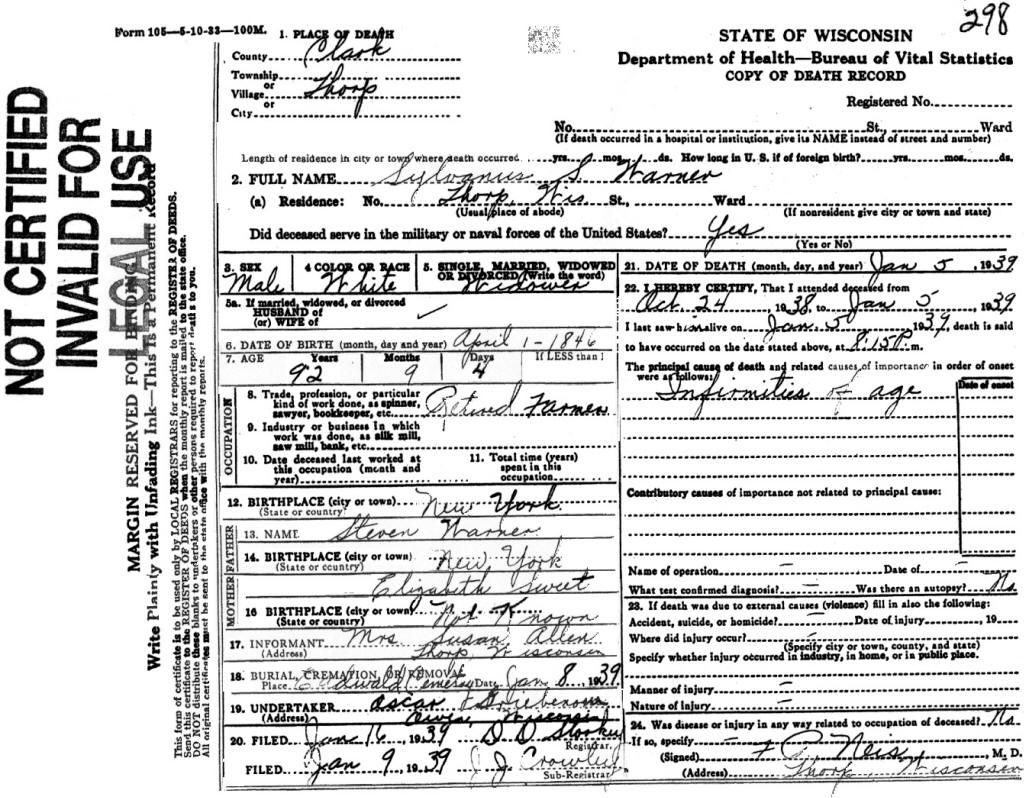 298
Form 105—5-10-33—100M.
STATE OF WISCONSIN
Department of Health—Bureau of Vital Statistics
COPY OF DEATH RECORD
Registered No.
1. PLACE OF DEATH
County Clark
Township
or
Village Thorp
or
City
No. St., Ward
(If death occurred in a hospital or institution, give its NAME instead of street and number)
Length of residence in city or town where death occurred yrs. mos. ds. How long in U. S. if of foreign birth? yrs. mos. ds.
2. FULL NAME Sylvanus S. Warner
(a) Residence: No. Thorp, Wis St., Ward
(Usual place of abode) (If nonresident give city or town and state)
Did deceased serve in the military or naval forces of the United States? Yes
(Yes or No)
3. SEX Male
4 COLOR OR RACE White
5. SINGLE, MARRIED, WIDOWED OR DIVORCED (Write the word) Widower
5a. If married, widowed, or divorced
HUSBAND of
(or) WIFE of
6. DATE OF BIRTH (month, day and year) April 1-1846
7. AGE Years Months Days If LESS than 1
92 9 4
OCCUPATION
8. Trade, profession, or particular
kind of work done, as spinner,
sawyer, bookkeeper, etc. Retired Farmer
9. Industry or business in which
work was done, as silk mill,
saw mill, bank, etc.
10. Date deceased last worked at
this occupation (month and
year)
11. Total time (years)
spent in this
occupation
12. BIRTHPLACE (city or town) New York
(State or country)
FATHER
13. NAME Steven Warner
14. BIRTHPLACE (city or town) New York
(State or country)
MOTHER
Elizabeth Sweet
16 BIRTHPLACE (city or town) Not Known
(State or country)
17. INFORMANT Mrs. Susan Allen
(Address) Thorp Wisconsin
18. BURIAL, CREMATION, OR REMOVAL
Place Cemetery Date Jan 8, 1939
19. UNDERTAKER Oscar
(Address) Owen, Wisconsin
20. FILED Jan 16, 1939 D. D.
Registrar.
FILED Jan 9, 1939 J. J. Crowley
Sub-Registrar
21. DATE OF DEATH (month, day, and year) Jan 5, 1939
22. I HEREBY CERTIFY, That I attended deceased from
Oct. 24, 1938 to Jan 5, 1939
I last saw him alive on Jan. 5, 1939, death is said
to have occurred on the date stated above, at 8:15 P. m.
The principal cause of death and related causes of importance in order of onset
were as follows:
Date of onset
Infirmities of age
Contributory causes of importance not related to principal cause:
Name of operation — Date of —
What test confirmed diagnosis? — Was there an autopsy? No
23. If death was due to external causes (violence) fill in also the following:
Accident, suicide, or homicide? — Date of injury, 19
Where did injury occur? —
(Specify city or town, county, and state)
Specify whether injury occurred in industry, in home, or in public place.
Manner of injury —
Nature of injury —
24. Was disease or injury in any way related to occupation of deceased? No
If so, specify —
(Signed) F. P. Neis, M. D.
(Address) Thorp, Wisconsin
NOT CERTIFIED
INVALID FOR
LEGAL USE
MARGIN RESERVED FOR BINDING
Write Plainly with Unfading Ink—This Is a Permanent Record
This form of certificate is to be used only by LOCAL REGISTRARS for reporting to the REGISTER OF DEEDS.
Send this certificate to the REGISTER OF DEEDS when the monthly report is mailed to the state office.
DO NOT distribute these blanks to undertakers or other persons required to report deaths to you.
All original certificates must be sent to the state office with the monthly reports.